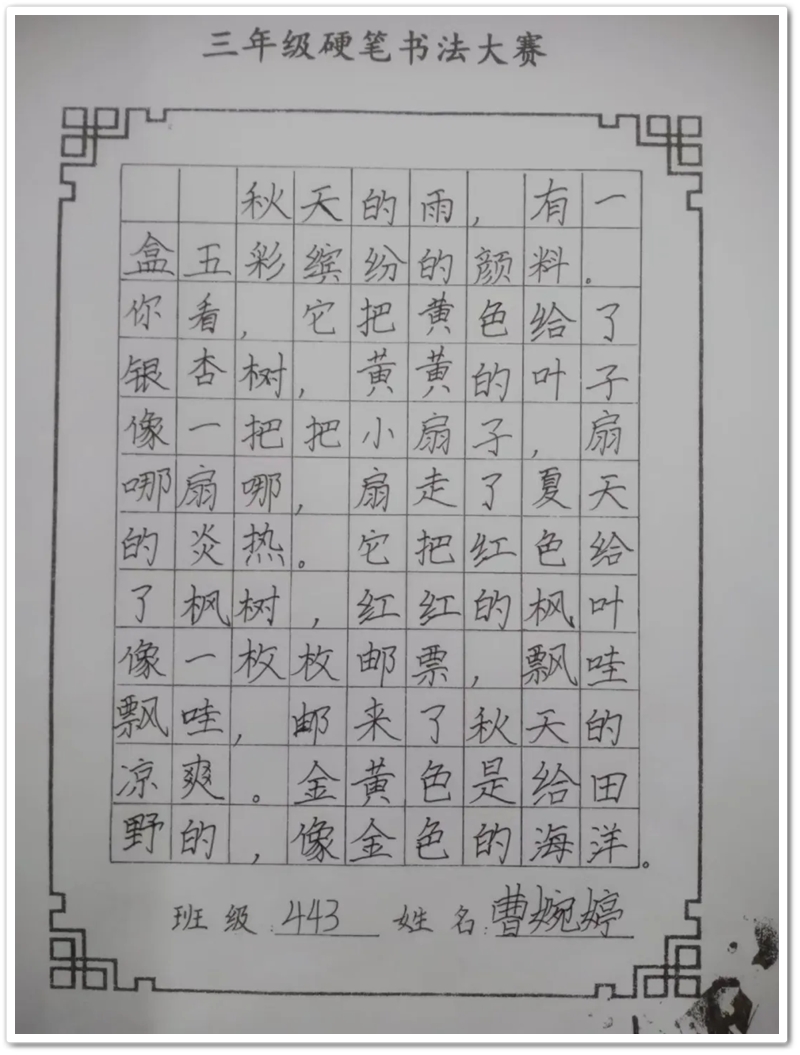 三年级硬笔书法大赛
秋天的雨，有一
盒五彩缤纷的颜料。
你看，它把黄色给了
银杏树，黄黄的叶子
像一把把小扇子，扇
哪扇哪，扇走了夏天
的炎热。它把红色给
了枫树，红红的枫叶
像一枚枚邮票，飘哇
飘哇，邮来了秋天的
凉爽。金黄色是给田
野的，像金色的海洋。
班级:443 姓名:曹婉婷